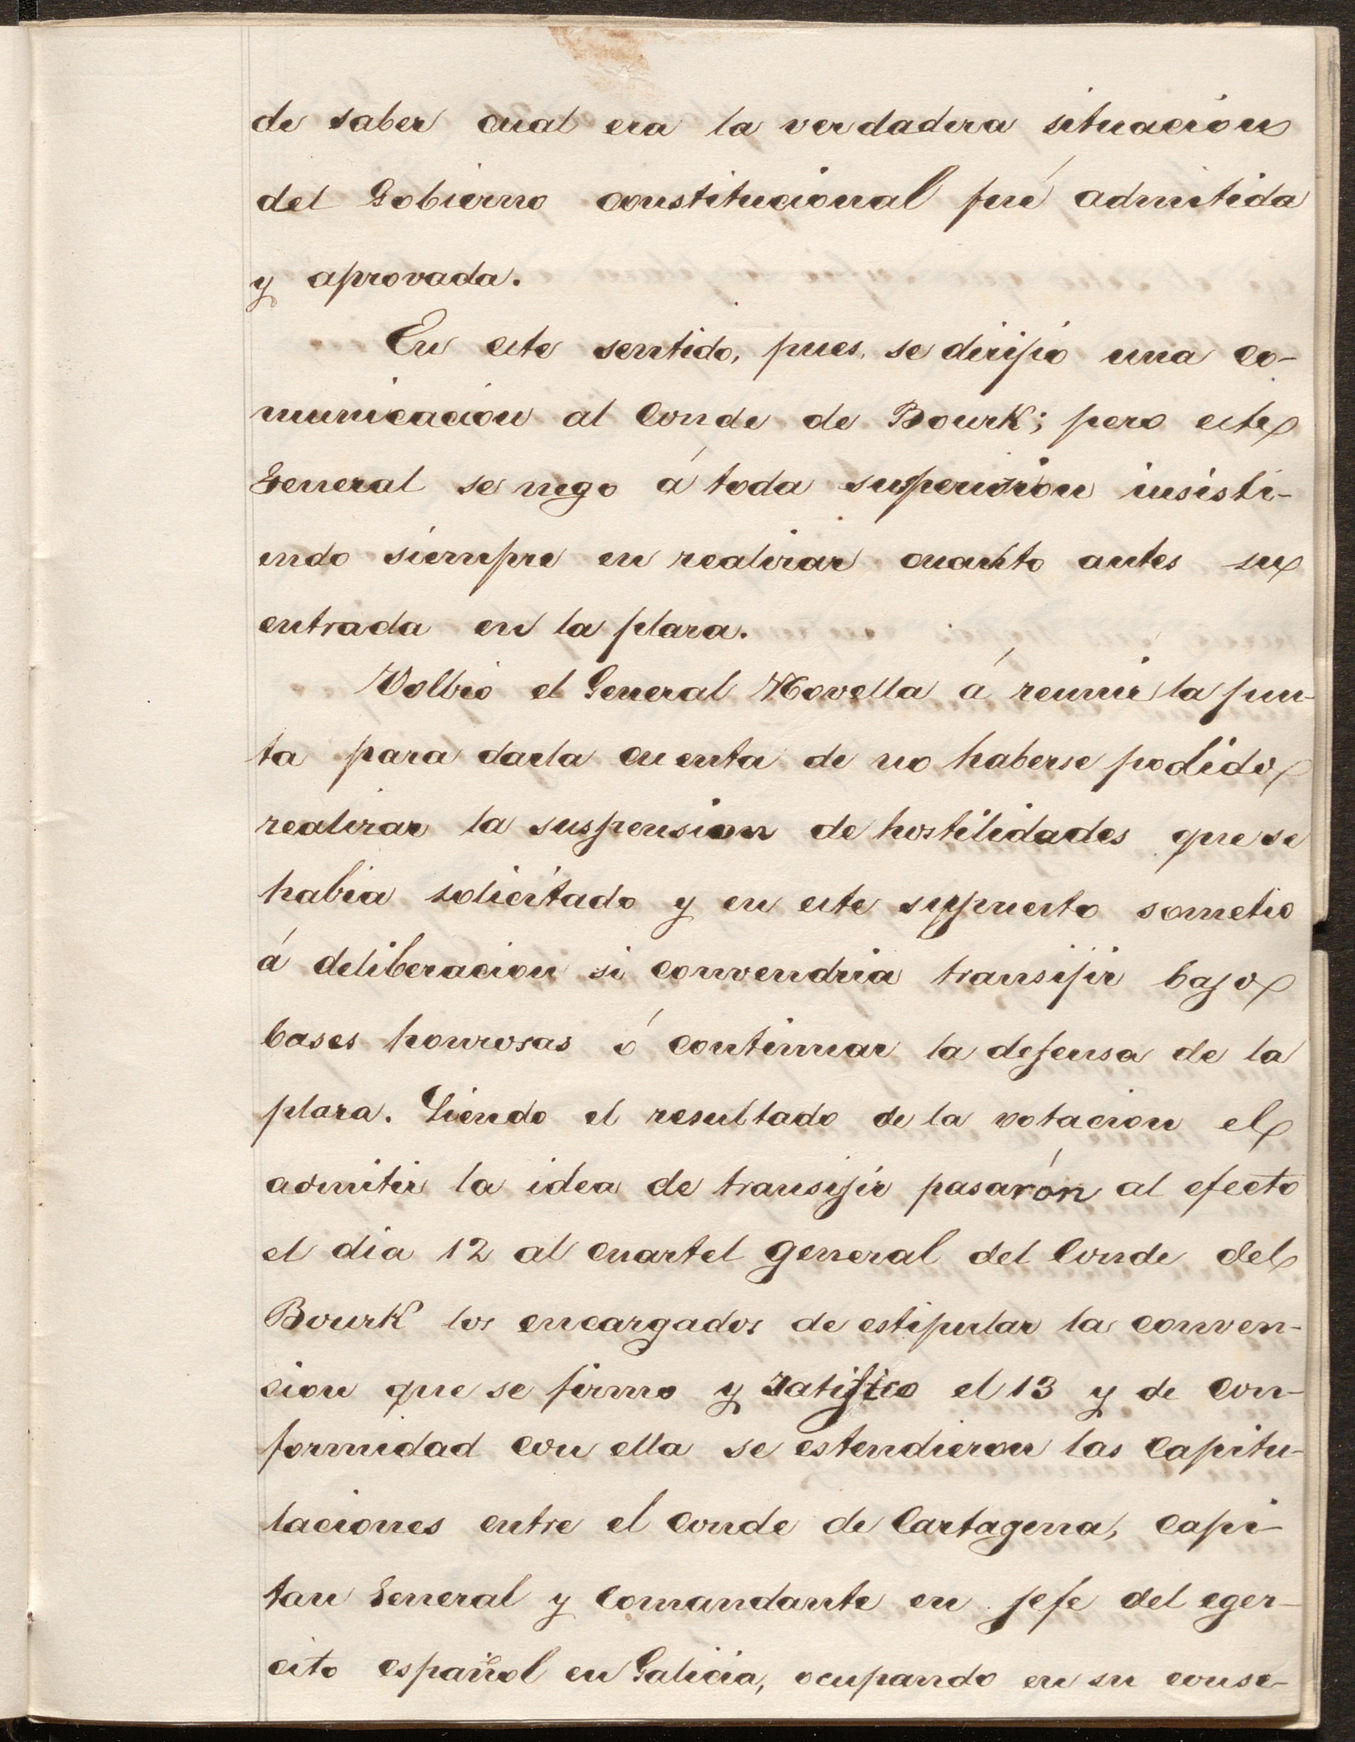 de saber cual era la verdadera situacion
del Gobierno constitucional fué admitida
y aprovada.
En este sentido, pues, se dirijió una co-
municacion al Conde de Bourk; pero este
General se nego á toda suspension insisti-
endo siempre en realizar cuanto antes su
entrada en la plaza.
Volbió el General Novella á reunir la jun-
ta para darla cuenta de no haberse podido
realizar la suspension de hostilidades que se
habia solicitado y en este supuesto sometio
á deliberacion si convendria transijir bajo
bases honrosas ó continuar la defensa de la
plaza. Siendo el resultado de la votacion el
admitir la idea de transijir pasarón al efecto
el dia 12 al cuartel general del Conde del
Bourk los encargados de estipular la conven-
cion que se firmo y ratifico el 13 y de con-
formidad con ella se estendieron las capitu-
laciones entre el Conde de Cartagena, capi-
tan General y Comandante en jefe del eger-
cito español en Galicia, ocupando en su conse-